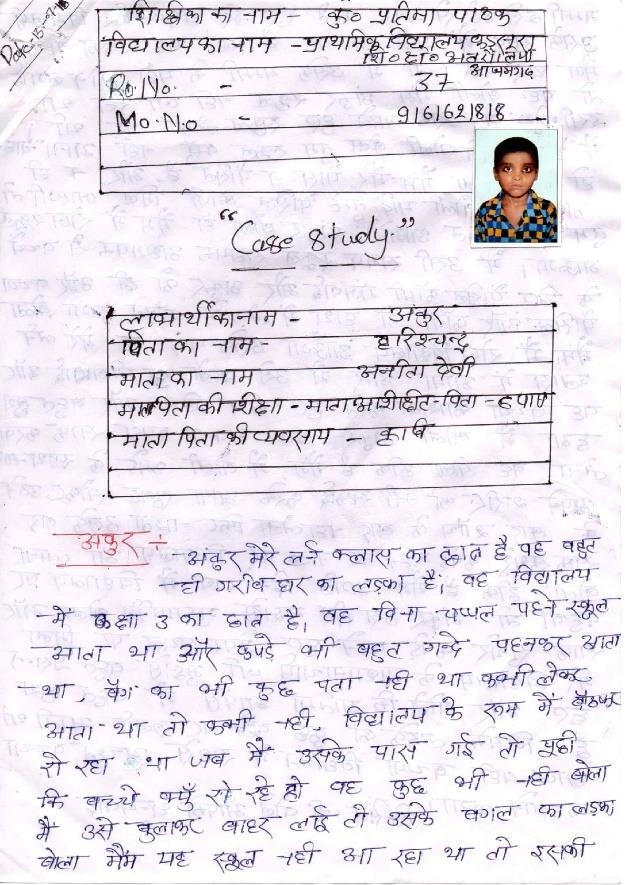 शिक्षिका का नाम - कु० प्रतिमा पाठक
विद्यालय का नाम - प्राथमिक विद्यालय
आजमगढ़
Ro. No. - 37
Mo. No - 9161621818
"Case Study"
लाभार्थी का नाम - अंकुर
पिता का नाम - हरिश्चन्द्र
माता का नाम - अनीता देवी
माता पिता की शिक्षा - माता अशिक्षित - पिता - 8 पास
माता पिता की व्यवसाय - कृषि
अंकुर ÷
अंकुर मेरे लर्न क्लास का छात्र है वह बहुत
ही गरीब घर का लड़का है, वह विद्यालय
में कक्षा 3 का छात्र है, वह बिना चप्पल पहने स्कूल
आता था और कपड़े भी बहुत गन्दे पहनकर आता
था, बैग का भी कुछ पता नही था कभी लेकर
आता था तो कभी नही, विद्यालय के रूम में बैठकर
रो रहा था जब मैं उसके पास गई तो पूछी
कि बच्चे क्यूँ रो रहे हो वह कुछ भी नही बोला
मैं उसे बुलाकर बाहर लाई तो उसके बगल का लड़का
बोला मैम यह स्कूल नही आ रहा था तो इसकी